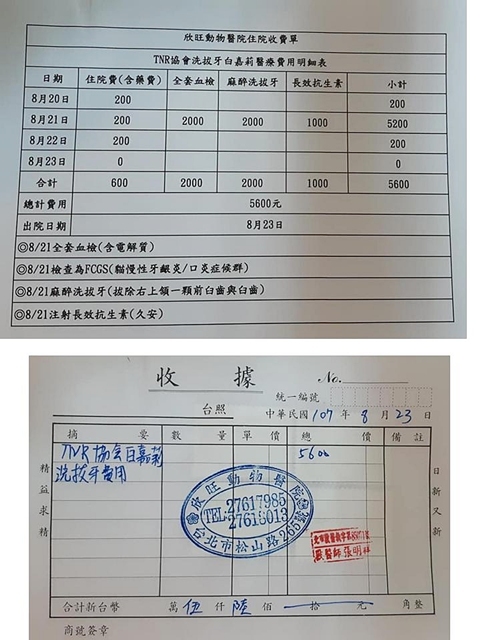 欣旺動物醫院住院收費單
TNR協會洗拔牙白嘉莉醫療費用明細表
日期 住院費(含藥費) 全套血檢 麻醉洗拔牙 長效抗生素 小計
8月20日 200 200
8月21日 200 2000 2000 1000 5200
8月22日 200 200
8月23日 0 0
合計 600 2000 2000 1000 5600
總計費用 5600元
出院日期 8月23日
◎8/21全套血檢(含電解質)
◎8/21檢查為FCGS(貓慢性牙齦炎/口炎症候群)
◎8/21麻醉洗拔牙(拔除右上顎一顆前臼齒與臼齒)
◎8/21注射長效抗生素(久安)
收據 No.
統一編號
台照 中華民國107年8月23日
摘要 數量 單價 總價 備註
TNR協会白嘉莉 5600
洗拔牙費用
精益求精
日新又新
欣旺動物醫院
TEL:27617985
27618013
台北市松山路265號
獸醫師張明祥
合計新台幣 萬伍仟陸佰拾元角整
商號簽章